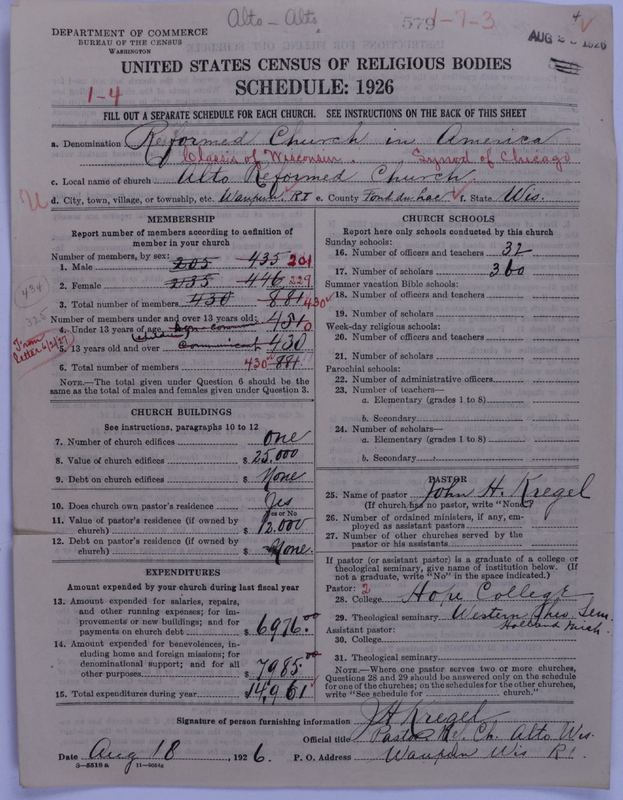 Alto - Alto
579 1-7-3
DEPARTMENT OF COMMERCE
BUREAU OF THE CENSUS
WASHINGTON
AUG 1926
UNITED STATES CENSUS OF RELIGIOUS BODIES
SCHEDULE: 1926
1-4
FILL OUT A SEPARATE SCHEDULE FOR EACH CHURCH. SEE INSTRUCTIONS ON THE BACK OF THIS SHEET
a. Denomination Reformed Church in America
Classis of Wisconsin. Synod of Chicago
c. Local name of church Alto Reformed Church
d. City, town, village, or township, etc. Waupun, R1 e. County Fond du Lac f. State Wis.
MEMBERSHIP
Report number of members according to definition of
member in your church
Number of members, by sex:
1. Male 205 435 201
2. Female 446 229
3. Total number of members 430 881 430
Number of members under and over 13 years old:
4. Under 13 years of age 451 0
5. 13 years old and over Communicant 430
6. Total number of members 430 881
434
325
From letter 6/2/27
NOTE.—The total given under Question 6 should be the
same as the total of males and females given under Question 3.
CHURCH BUILDINGS
See instructions, paragraphs 10 to 12
7. Number of church edifices One
8. Value of church edifices $ 25.000
9. Debt on church edifices $ None
10. Does church own pastor's residence Yes
Yes or No
11. Value of pastor's residence (if owned by
church) $ 12.000
12. Debt on pastor's residence (if owned by
church) $ None.
EXPENDITURES
Amount expended by your church during last fiscal year
13. Amount expended for salaries, repairs,
and other running expenses; for im-
provements or new buildings; and for
payments on church debt $ 6976.00
14. Amount expended for benevolences, in-
cluding home and foreign missions; for
denominational support; and for all
other purposes $ 7985.00
15. Total expenditures during year $ 14,961
CHURCH SCHOOLS
Report here only schools conducted by this church
Sunday schools:
16. Number of officers and teachers 32
17. Number of scholars 360
Summer vacation Bible schools:
18. Number of officers and teachers
19. Number of scholars
Week-day religious schools:
20. Number of officers and teachers
21. Number of scholars
Parochial schools:
22. Number of administrative officers
23. Number of teachers—
a. Elementary (grades 1 to 8)
b. Secondary
24. Number of scholars—
a. Elementary (grades 1 to 8)
b. Secondary
PASTOR
25. Name of pastor John H. Kregel
(If church has no pastor, write "None")
26. Number of ordained ministers, if any, em-
ployed as assistant pastors
27. Number of other churches served by the
pastor or his assistants
If pastor (or assistant pastor) is a graduate of a college or
theological seminary, give name of institution below. (If
not a graduate, write "No" in the space indicated.)
Pastor: 2
28. College Hope College
29. Theological seminary Western Theo. Sem.
Holland Mich.
Assistant pastor:
30. College
31. Theological seminary
NOTE.—Where one pastor serves two or more churches,
Questions 28 and 29 should be answered only on the schedule
for one of the churches; on the schedules for the other churches,
write "See schedule for church."
Signature of person furnishing information J H Kregel
Official title Pastor Ref. Ch. Alto Wis.
Date Aug 18, 1926. P. O. Address Waupun Wis R1.